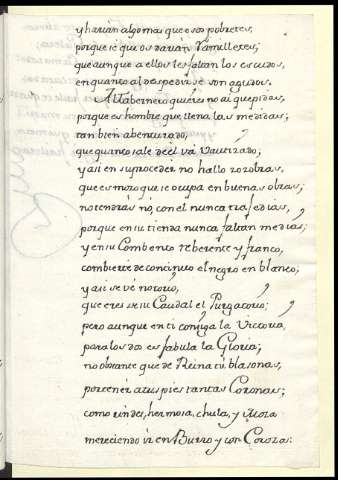 y harán algo mas que esos pobretes,
porque se que os darán Ramilletes;
que aunque a ellos les faltan los escudos,
en quanto al despedirse son agudos.
Al tabernero quieres no ai que pedirlas,
porque es hombre que llena las medidas;
tan bien abenturado,
que quanto sale de èl và Vautizado;
y asi en su proceder no hallo zozobras,
que es mozo que se ocupa en buenas obras;
no tendràs nò, con el nunca trajedias,
porque en su tienda nunca faltan medias;
y en su Combento reberente y franco,
combierte de continuo el negro en blanco;
y asi se vè notorio,
que eres de su Caudal el Purgatorio;
pero aunque en ti consiga la Victoria,
para los dos es fabula la Gloria;
no obstante que de Reina tù blasonas,
por tener a tus pies tantas Coronas;
como rindes, hermosa, chula, y Moza
mereciendo ir en Burro y con Coroza.